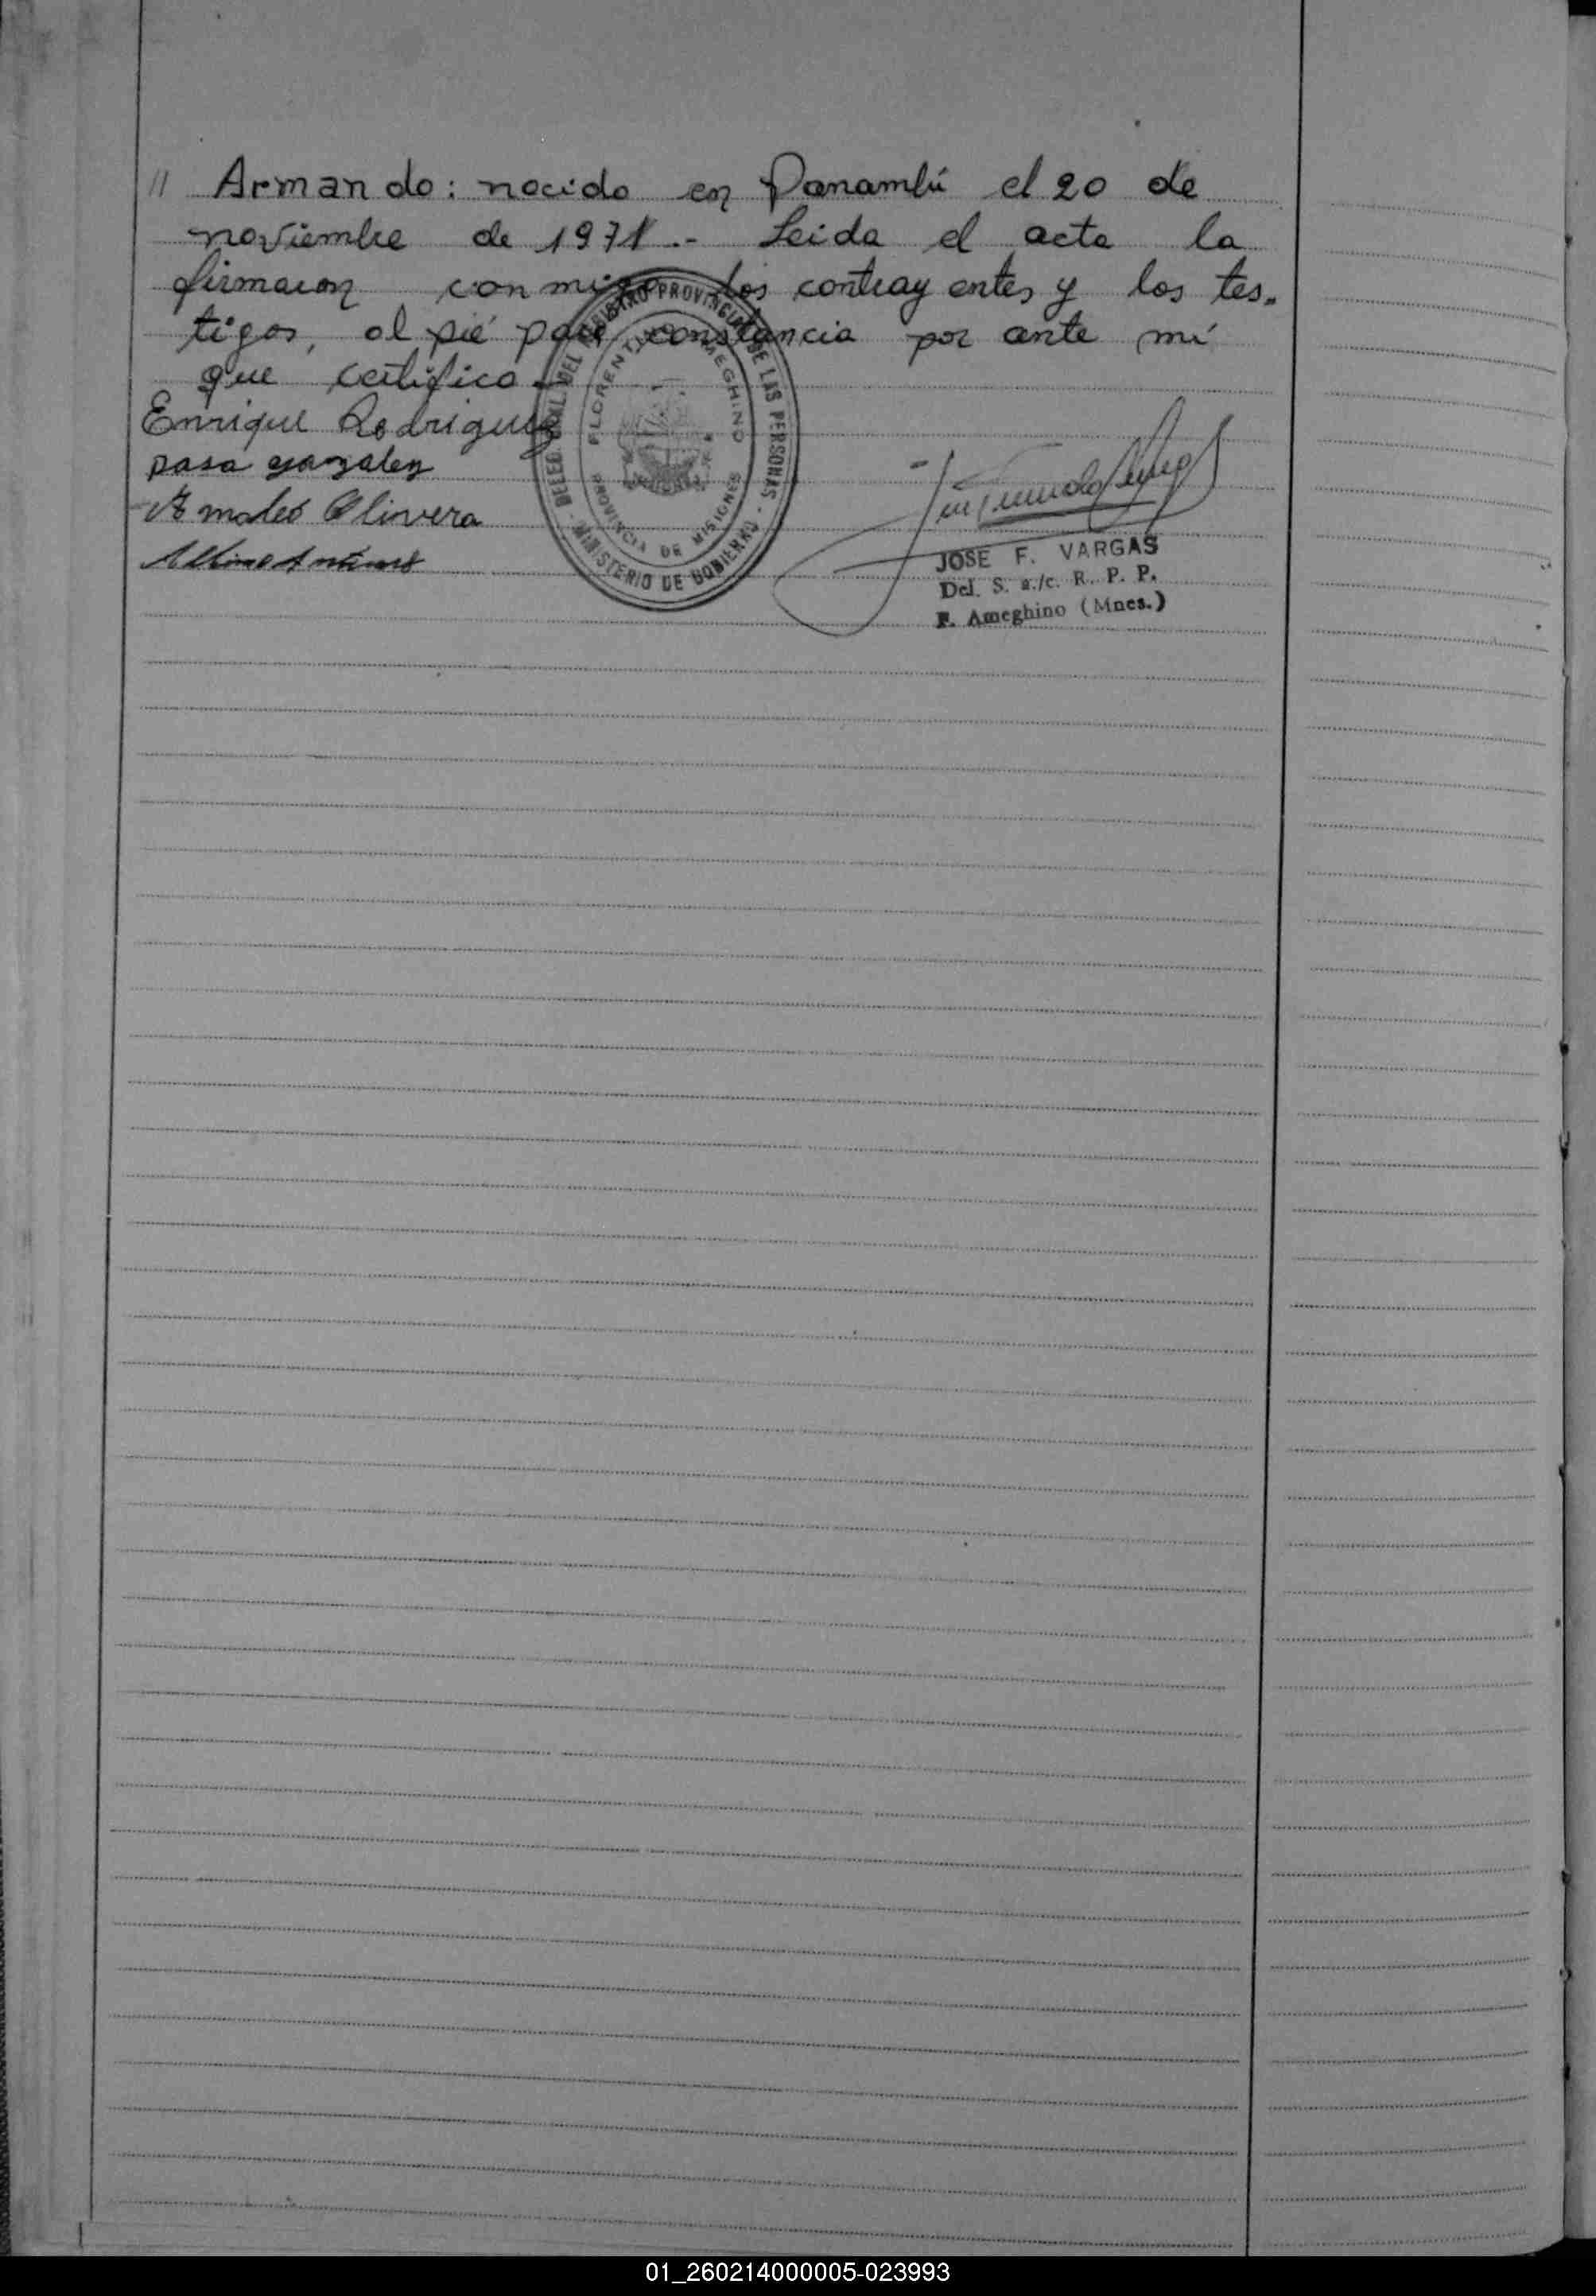 // Armando: nacido en Panambí el 20 de
noviembre de 1971.- Leida el acta la
firmaron conmigo los contrayentes y los tes-
tigos, al pié para constancia por ante mí
que certifico.-
Enrique Rodriguez
rosa gonzalez
Amadeo Olivera
Albino Antunes
DELEG. DEL REGISTRO PROVINCIAL DE LAS PERSONAS - MINISTERIO DE GOBIERNO -
FLORENTINO AMEGHINO
PROVINCIA DE MISIONES
JOSE F. VARGAS
Del. S. a./c. R. P. P.
F. Ameghino (Mnes.)
01_260214000005-023993